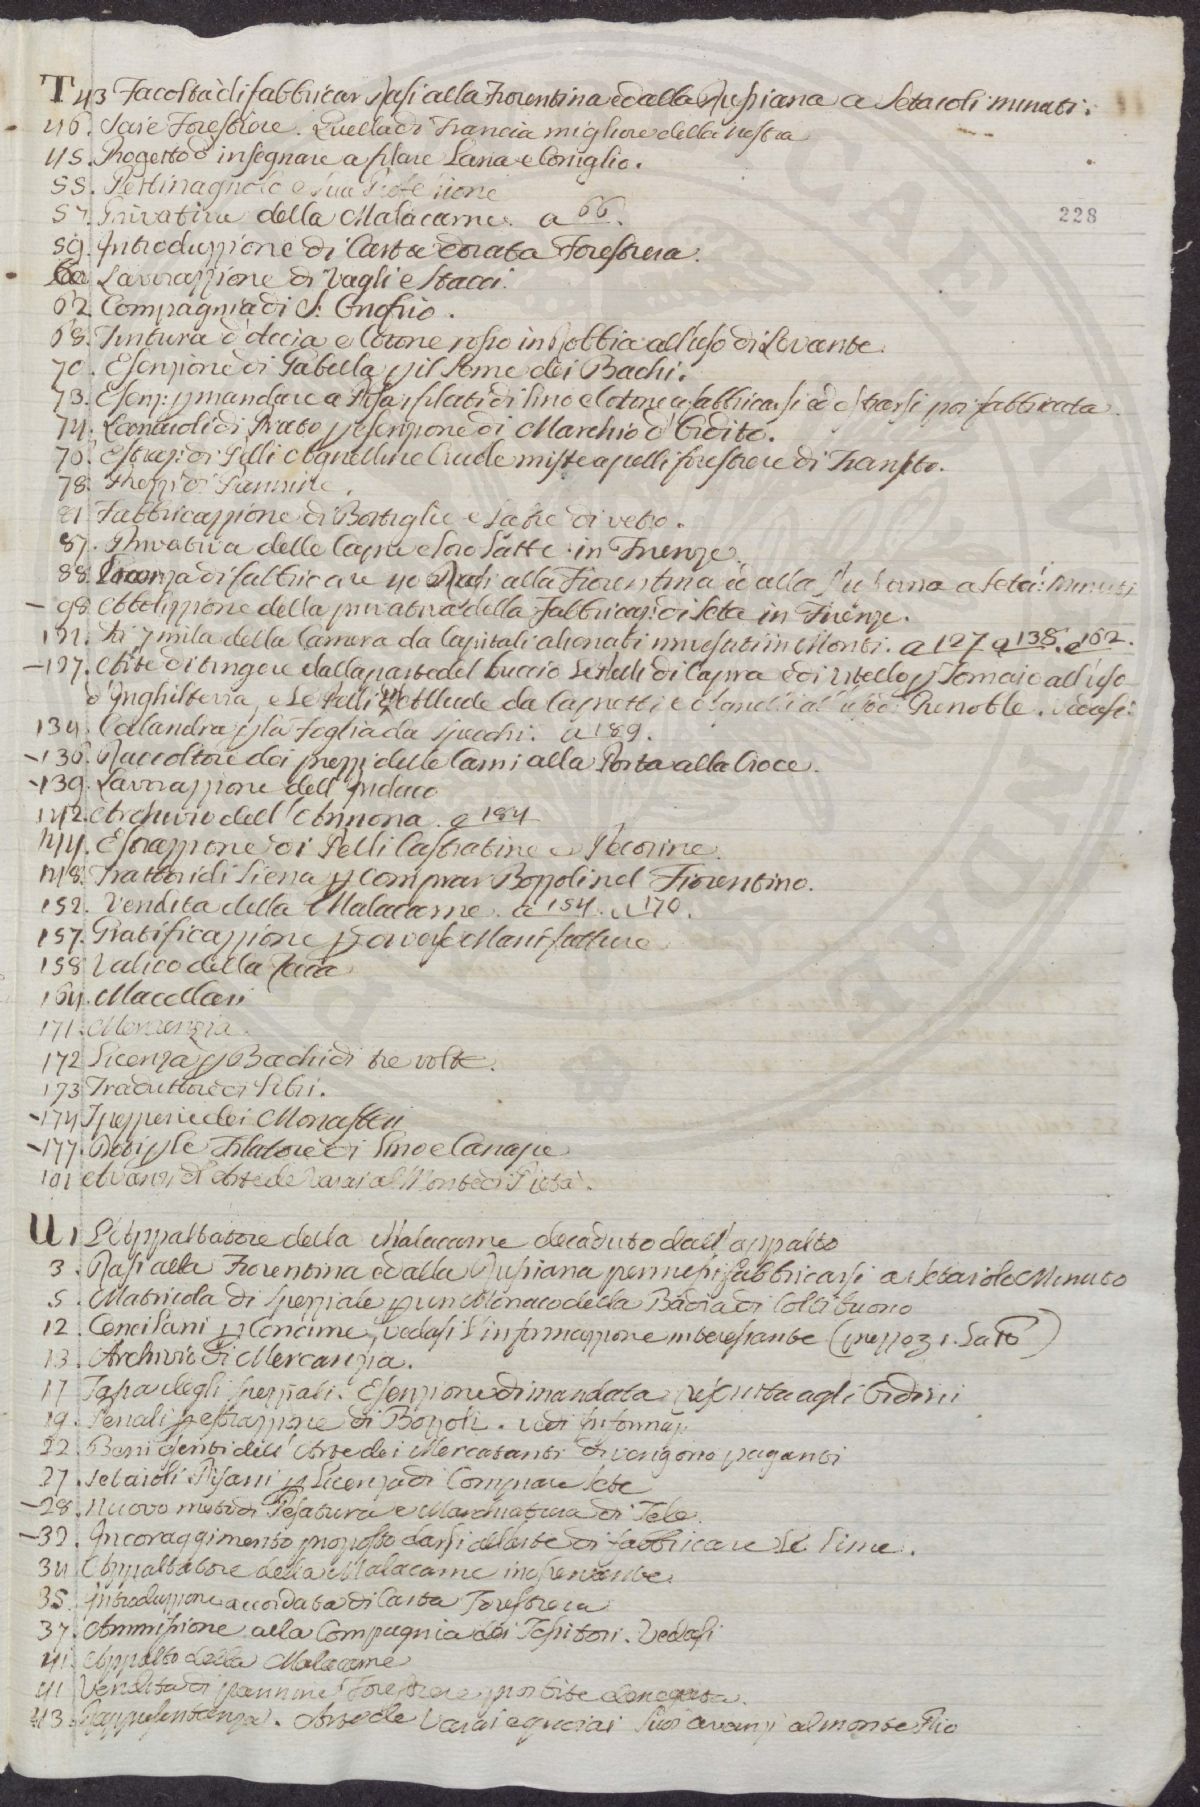 T 43 Facoltà di fabbricar Rasi alla Fiorentina ed alla Prussiana a Setaioli minuti.
46. Saie Forestiere. Quella di Francia migliore della nostra
45. Progetto d'insegnare a filare Lana e Coniglio.
55. Pettinagnolo e sua Professione
228
57. Privativa della Malacarne. a 66.
59. Introduzzione di Carta dorata Forestiera.
60 Lavorazzione di Vagli e Stacci.
62. Compagnia di S: Onofrio.
68. Tintura d'Accia e Cotone rosso in Robbia all'uso di Levante.
70. Esenzione di Gabella p il Seme dei Bachi.
73. Esenz: p mandare a Pisa filati di lino e Cotone a fabbricarsi ed estrarsi poi fabbricata
74. Lanaioli di Prato p esenzione di Marchio d'Orditо.
76. Estraz: di Pelli Agnelline Crude miste a pelli forestiere di Transito.
78. Prezzi di Pannine.
81. Fabbricazzione di Bottiglie e lastre di vetro.
87. Privativa delle Capre e loro Latte in Firenze.
88. Licenza di fabbricare Rasi alla Fiorentina ed alla Prussiana a Setai: minuti
- 98. Abolizzione della privativa della Fabbricaz: di Seta in Firenze.
121. mila della Camera da Capitali alienati investiti in Monti. a 127 e 138. e 162.
- 127. Arte di tingere dalla parte del buccio le Pelli di Capra e di Vitello p Tomaio all'uso
d'Inghilterra, e le Pelli da Capretti e d'Agnelli all'uso di Grenoble. Vedasi:
134. Calandra p la foglia da specchi. a 189.
- 136. Raccoltore dei prezzi delle Carni alla Porta alla Croce.
- 139. Lavorazzione dell'Indaco
142. Archivio dell'Annona. a 184
144. Estrazzione di Pelli Castratine e Pecorine.
148. Trattori di Siena p comprar Bozzoli nel Fiorentino.
152. Vendita della Malacarne. a 154. e 170.
157. Gratificazzione p diverse Manifatture
158. Valico della
164. Macellari
171. Mercanzia.
172 Licenza p Bachi di tre volte.
173 Traduttore di Libri.
- 174 Spezzerie dei Monasteri
- 177. p le Filatore di lino e Canapa
191 Avanzi dell'Arte de Vaiai al Monte di Pietà.
U 1 L'Appaltatore della Malacarne decaduto dall'appalto
3. Rasi alla Fiorentina ed alla Prussiana permessi fabbricarsi a Setaiolo Minuto
5. Matricola di Speziale p un Monaco della Badia di Coltibuono
12. Conciliani p Concime, vedasi l'informazzione interessante (prezzo 31. La To)
13. Archivio di Mercanzia.
17 Tassa degli Speziali. Esenzione dimandata
19. Penali p estrazzione di Bozzoli. vedi Informaz:
22. Beni Genti dell'Arte dei Mercatanti divengono paganti
27. Setaioli Pisani p Licenza di Comprare Sete
- 28. Nuovo metodo di Pesatura e Marchiatura di Tele.
- 32. Incoraggimento proposto darsi all'Arte di fabbricare le Lime.
34 Appaltatore della Malacarne inosservante.
35. Introduzzione accordata di Carta Forestiera
37. Ammissione alla Compagnia dei Tessitori. Vedasi
41. Appalto della Malacarne
41 Vendita di pannine Forestiere proibite denegata.
43. Rappresentanza. Arte de Vaiai e quoiai suoi avanzi al monte Pio